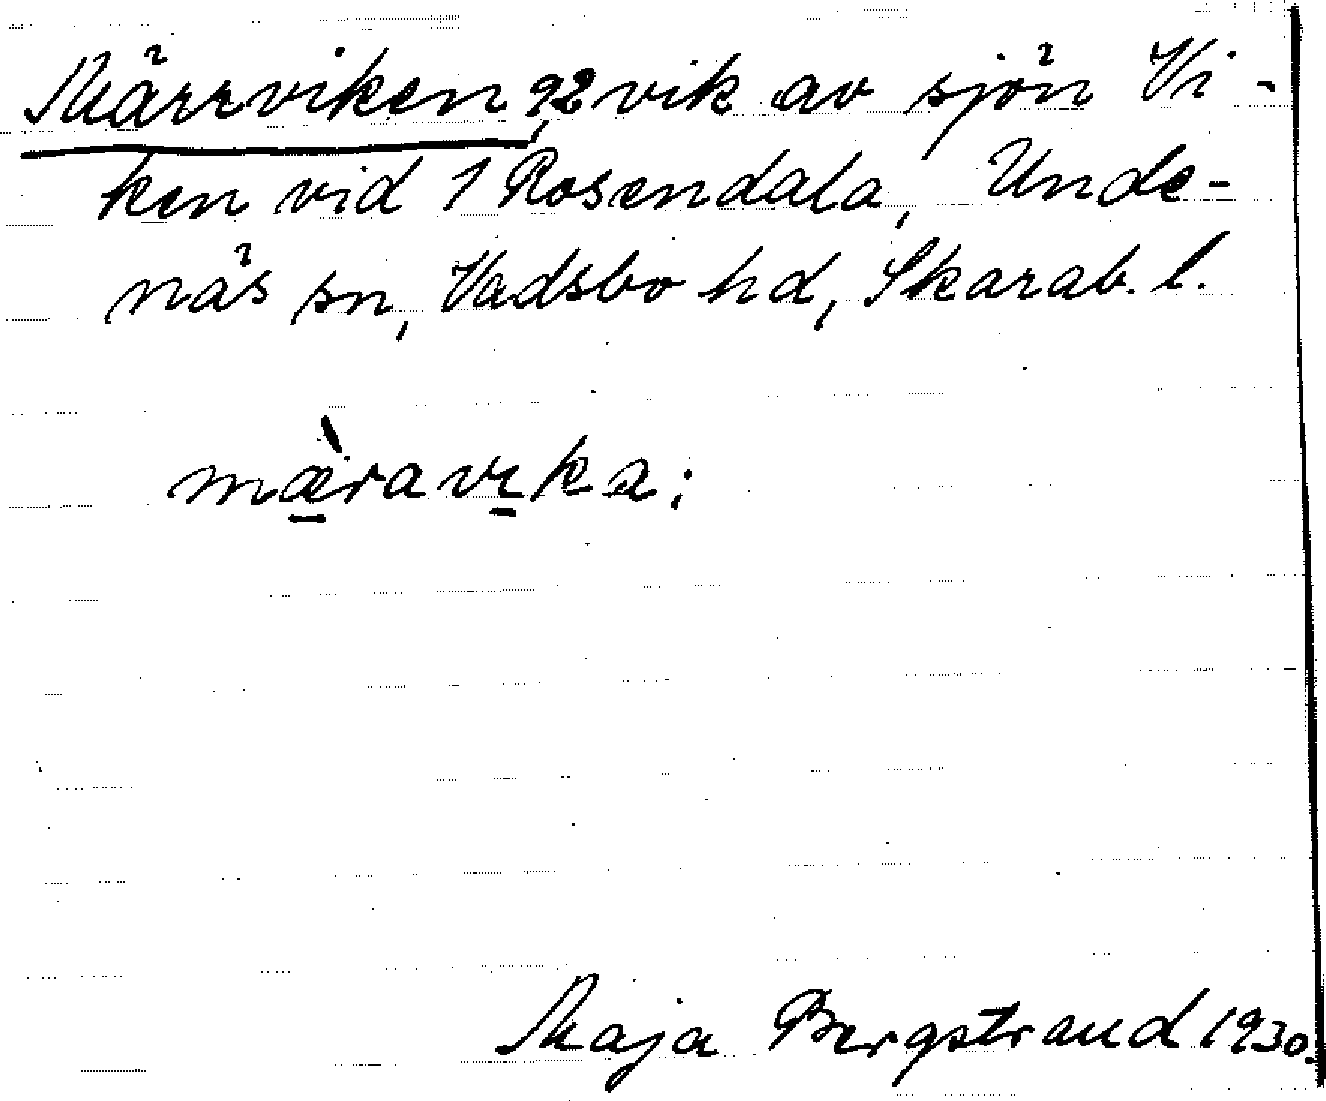 Märrviken, 92 vik av sjön Vi-
ken vid 1 Rosendala, Unde-
näs sn, Vadsbo hd, Skarab. l.
mæ̀ravıka;
Maja Bergstrand 1930.